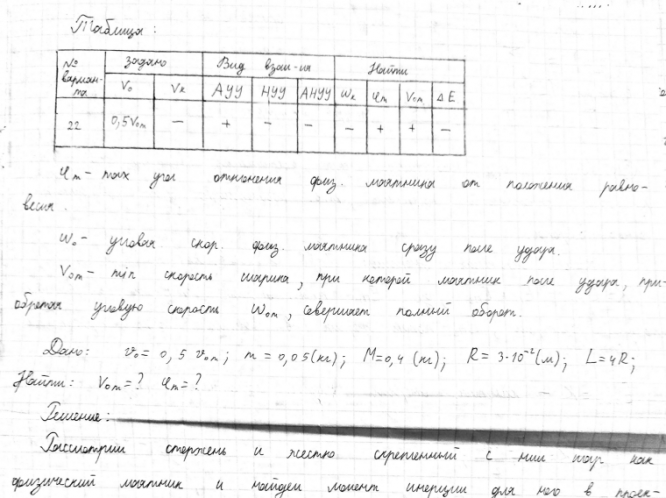 Таблица:
№ вариан-та | Задано | Вид взаи-ия | Найти
V₀ | Vк | АУУ | НУУ | АНУУ | Wк | φm | V₀m | ΔE
22 | 0,5V₀m | — | + | — | — | — | + | + | —
φm - max угол отклонения физ. маятника от положения равно-
весия.
ω₀ - угловая скор. физ. маятника сразу после удара.
V₀m - min скорость шарика, при которой маятник после удара, при-
обретая угловую скорость ω₀m, совершает полный оборот.
Дано: v₀ = 0,5 v₀m; m = 0,05 (кг); M = 0,4 (кг); R = 3·10⁻² (м); L = 4R;
Найти: V₀m = ? φm = ?
Решение:
Рассмотрим стержень и жестко скрепленный с ним шар как
физический маятник и найдем момент инерции для него в проек-